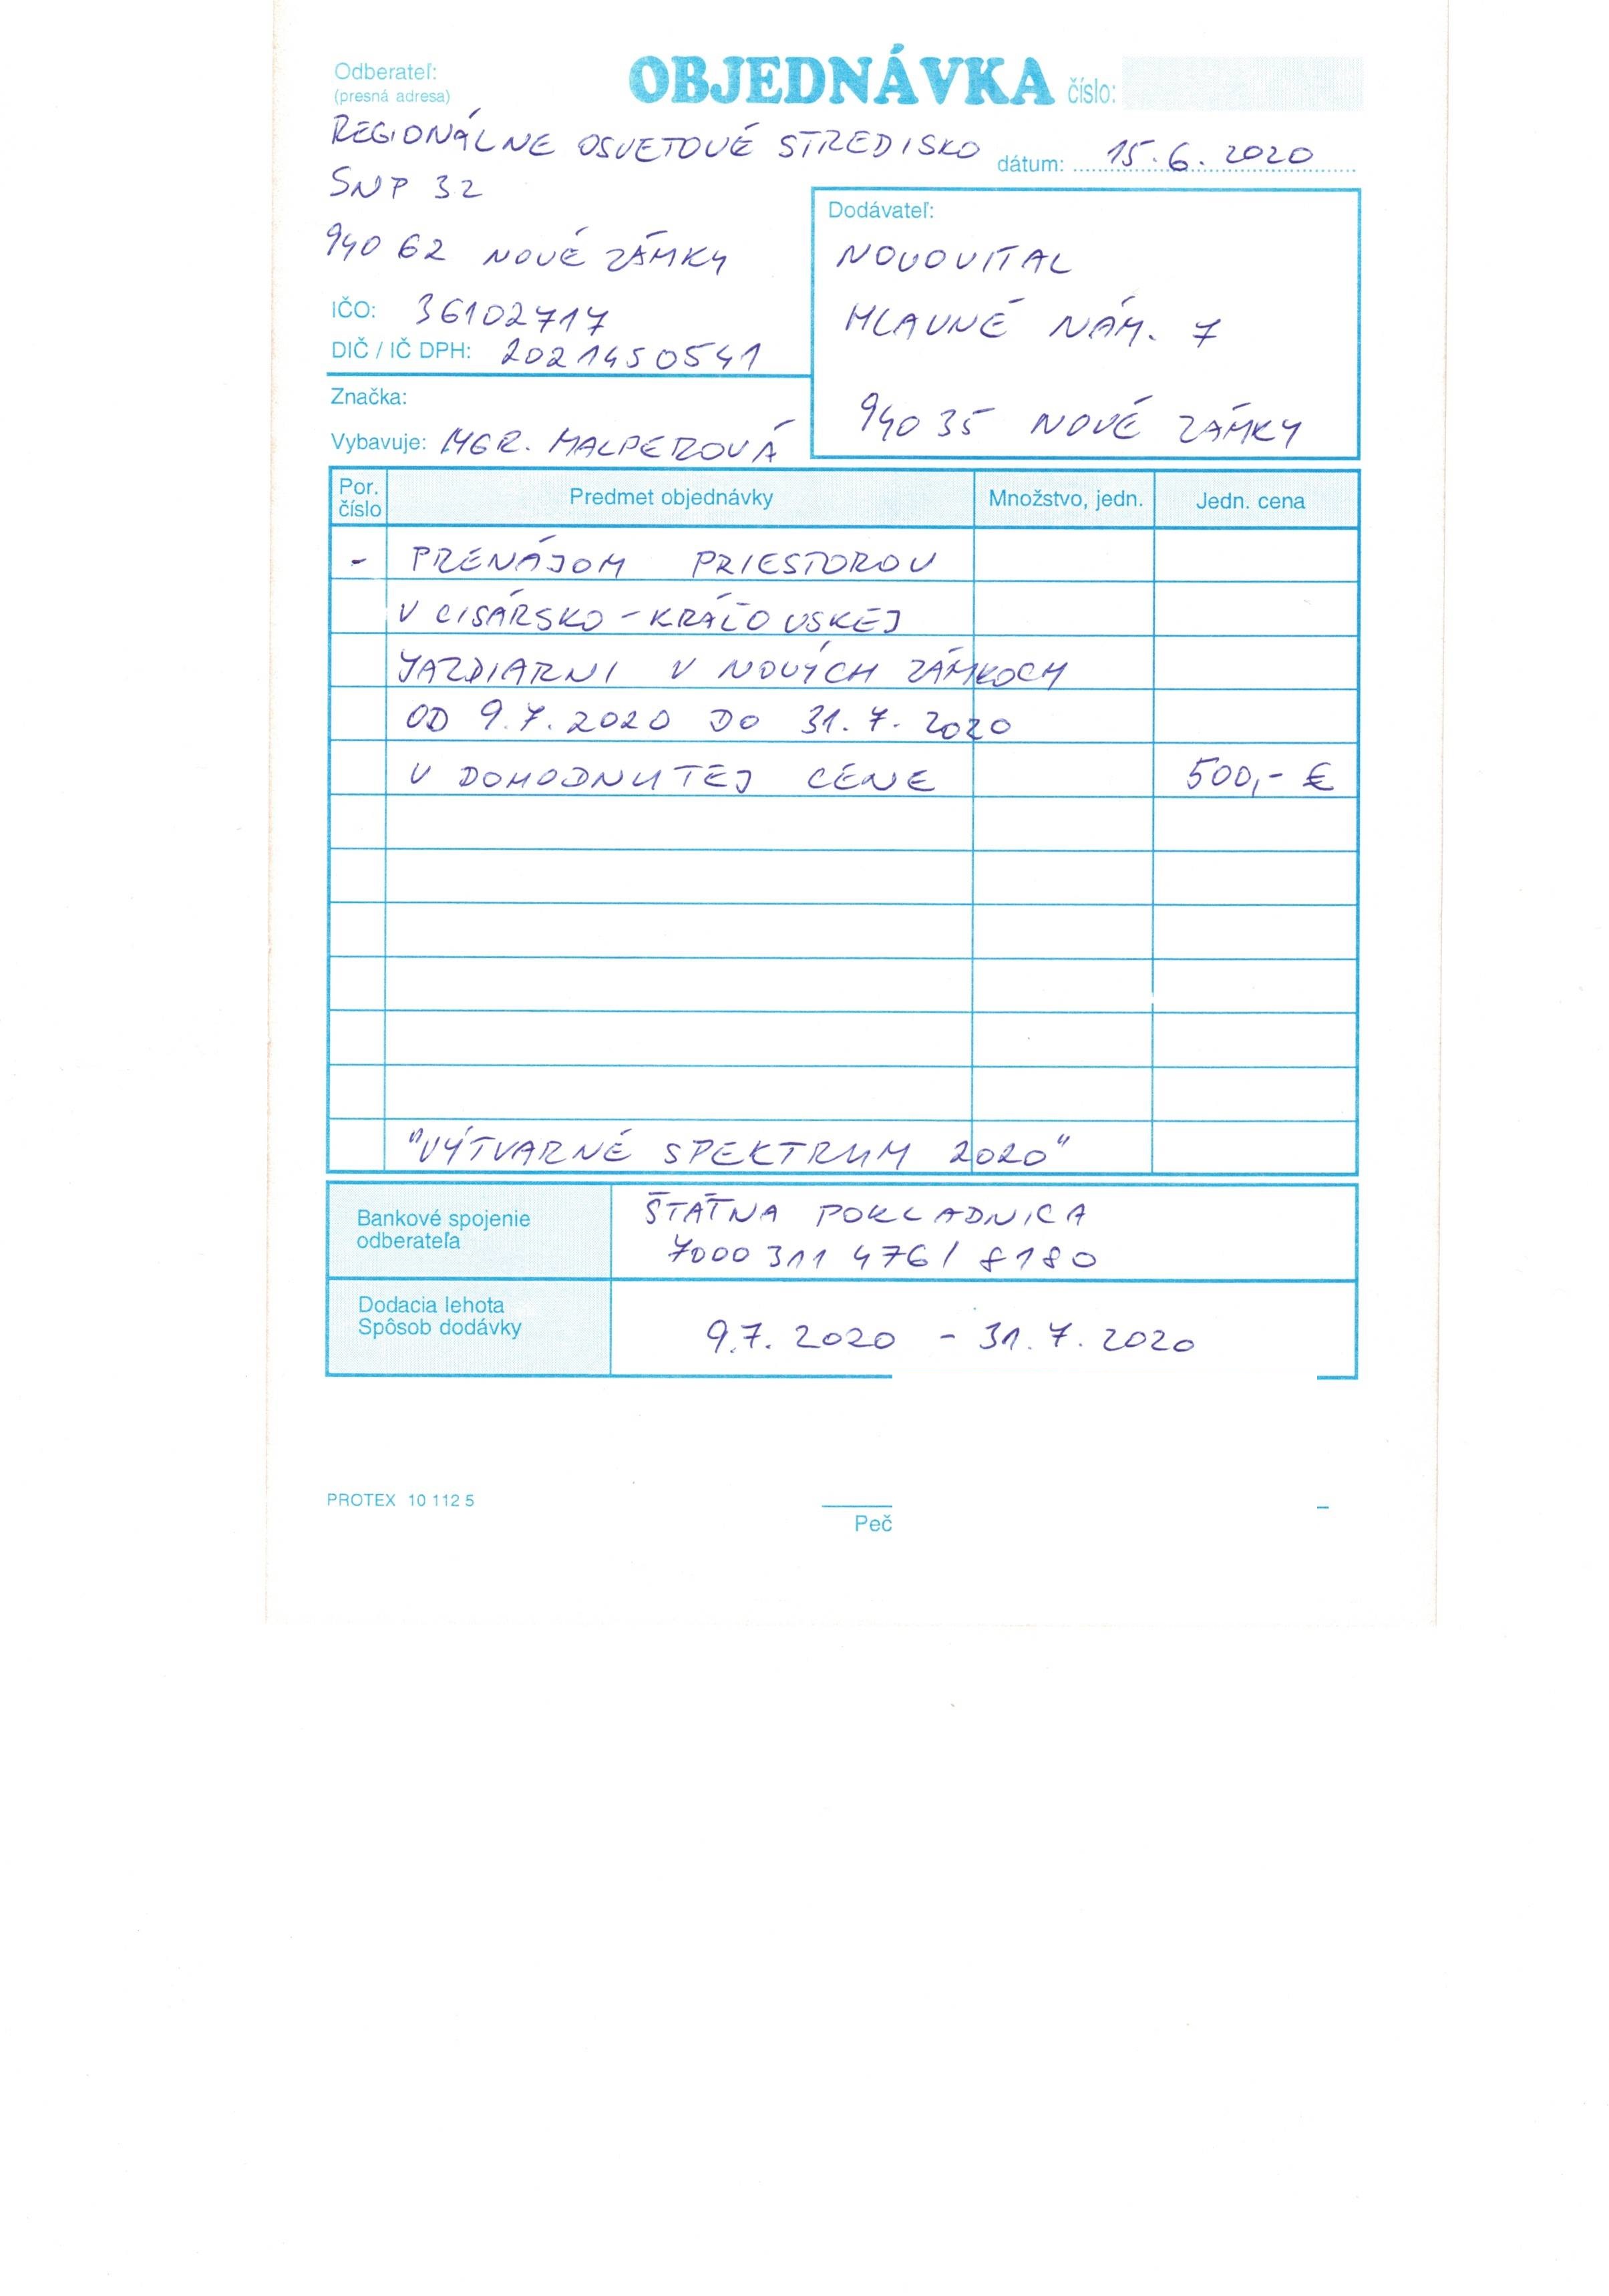 Odberateľ:
(presná adresa)
OBJEDNÁVKA číslo:
REGIONÁLNE OSVETOVÉ STREDISKO
dátum: 15.6.2020
SNP 32
940 62 NOVÉ ZÁMKY
IČO: 36102717
DIČ / IČ DPH: 2021450541
Dodávateľ:
NOVOVITAL
HLAVNÉ NÁM. 7
940 35 NOVÉ ZÁMKY
Značka:
Vybavuje: MGR. HALPEROVÁ
Por. číslo Predmet objednávky Množstvo, jedn. Jedn. cena
- PRENÁJOM PRIESTOROV
V CISÁRSKO-KRÁĽOVSKEJ
JAZDIARNI V NOVÝCH ZÁMKOCH
OD 9.7.2020 DO 31.7.2020
V DOHODNUTEJ CENE 500,- €
"VÝTVARNÉ SPEKTRUM 2020"
Bankové spojenie
odberateľa
ŠTÁTNA POKLADNICA
7000 311 476/8180
Dodacia lehota
Spôsob dodávky
9.7.2020 - 31.7.2020
PROTEX 10 112 5
Peč